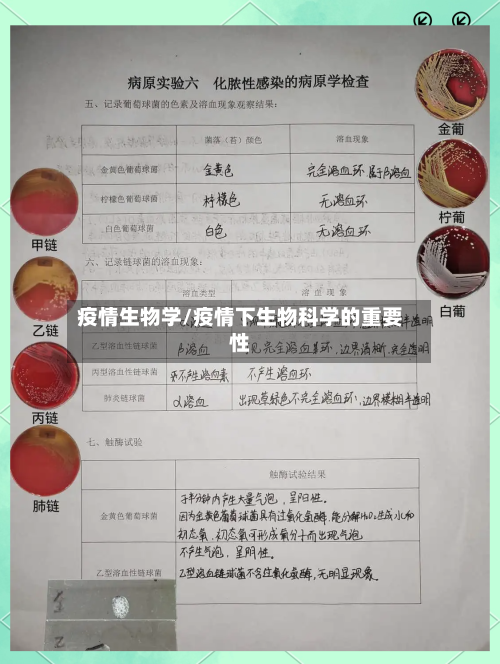 病原实验六 化脓性感染的病原学检查
五、记录葡萄球菌的色素及溶血现象观察结果：
菌落（苔）颜色 溶血现象
金黄色葡萄球菌 金黄色 完全溶血环 属于β溶血
柠檬色葡萄球菌 柠檬色 无溶血环
白色葡萄球菌 白色 无溶血环
六、记录链球菌的溶血现象：
溶血类型 溶血现象
疫情生物学/疫情下生物科学的重要
性
乙型溶血性链球菌 β溶血 完全溶血环，边界清晰，完全透明
丙型溶血性链球菌 不产生溶血素 不产生溶血环
肺炎链球菌 α溶血 出现草绿色不完全溶血环，边界模糊半透明
七、触酶试验
触酶试验结果
金黄色葡萄球菌 于半分钟内产生大量气泡，呈阳性。
因为金黄色葡萄球菌具有过氧化氢酶，能分解H₂O₂生成水和
初态氧，初态氧可形成氧分子而出现气泡
乙型溶血性链球菌 不产生气泡，呈阴性。
乙型溶血链球菌不含过氧化氢酶，无明显现象。
金葡
柠葡
白葡
甲链
乙链
丙链
肺链